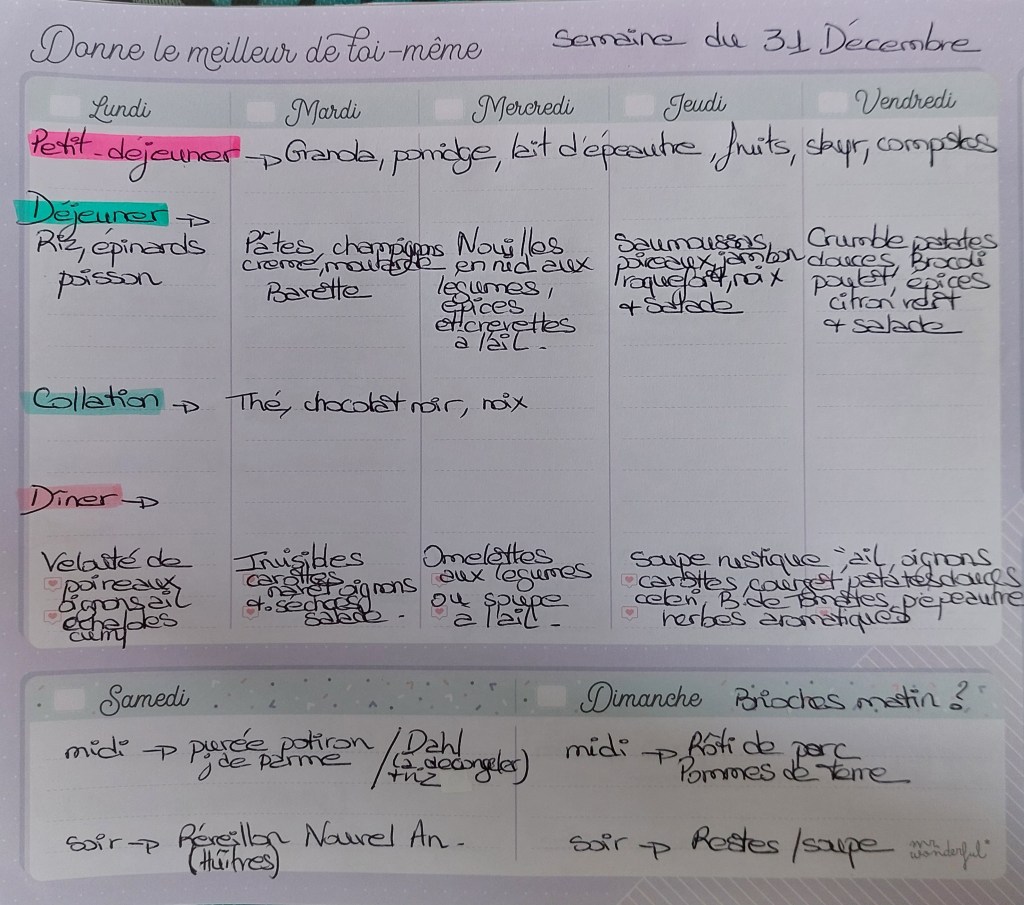 Donne le meilleur de toi-même
Semaine du 31 Décembre
Lundi
Mardi
Mercredi
Jeudi
Vendredi
Petit-déjeuner → Granola, porridge, lait d'épeautre, fruits, skyr, compotes
Déjeuner →
Riz, épinards
poisson
Pâtes, champignons
crème, moutarde
Barette
Nouilles
en nid aux
légumes,
épices
et crevettes
à l'ail.
poireaux, jambon
roquefort, noix
+ Salade
Crumble patates
douces, Brocoli
poulet, épices
citron vert
+ salade
Collation → Thé, chocolat noir, noix
Dîner →
Velouté de
poireaux
oignons, ail
Invisibles
carottes
navet oignons
salade.
Omelettes
aux légumes
ou soupe
à l'ail.
Soupe rustique, ail, oignons
carottes, courget patates douces
céleri, B. de Tomates, p'épeautre
herbes aromatiques
Samedi
midi → purée potiron
j de parme
/ Dahl
(à décongeler)
+ riz
soir → Réveillon Nouvel An.
(Huîtres)
Dimanche Brioches matin ?
midi → Rôti de porc
Pommes de Terre
soir → Restes / soupe
mr.
wonderful*